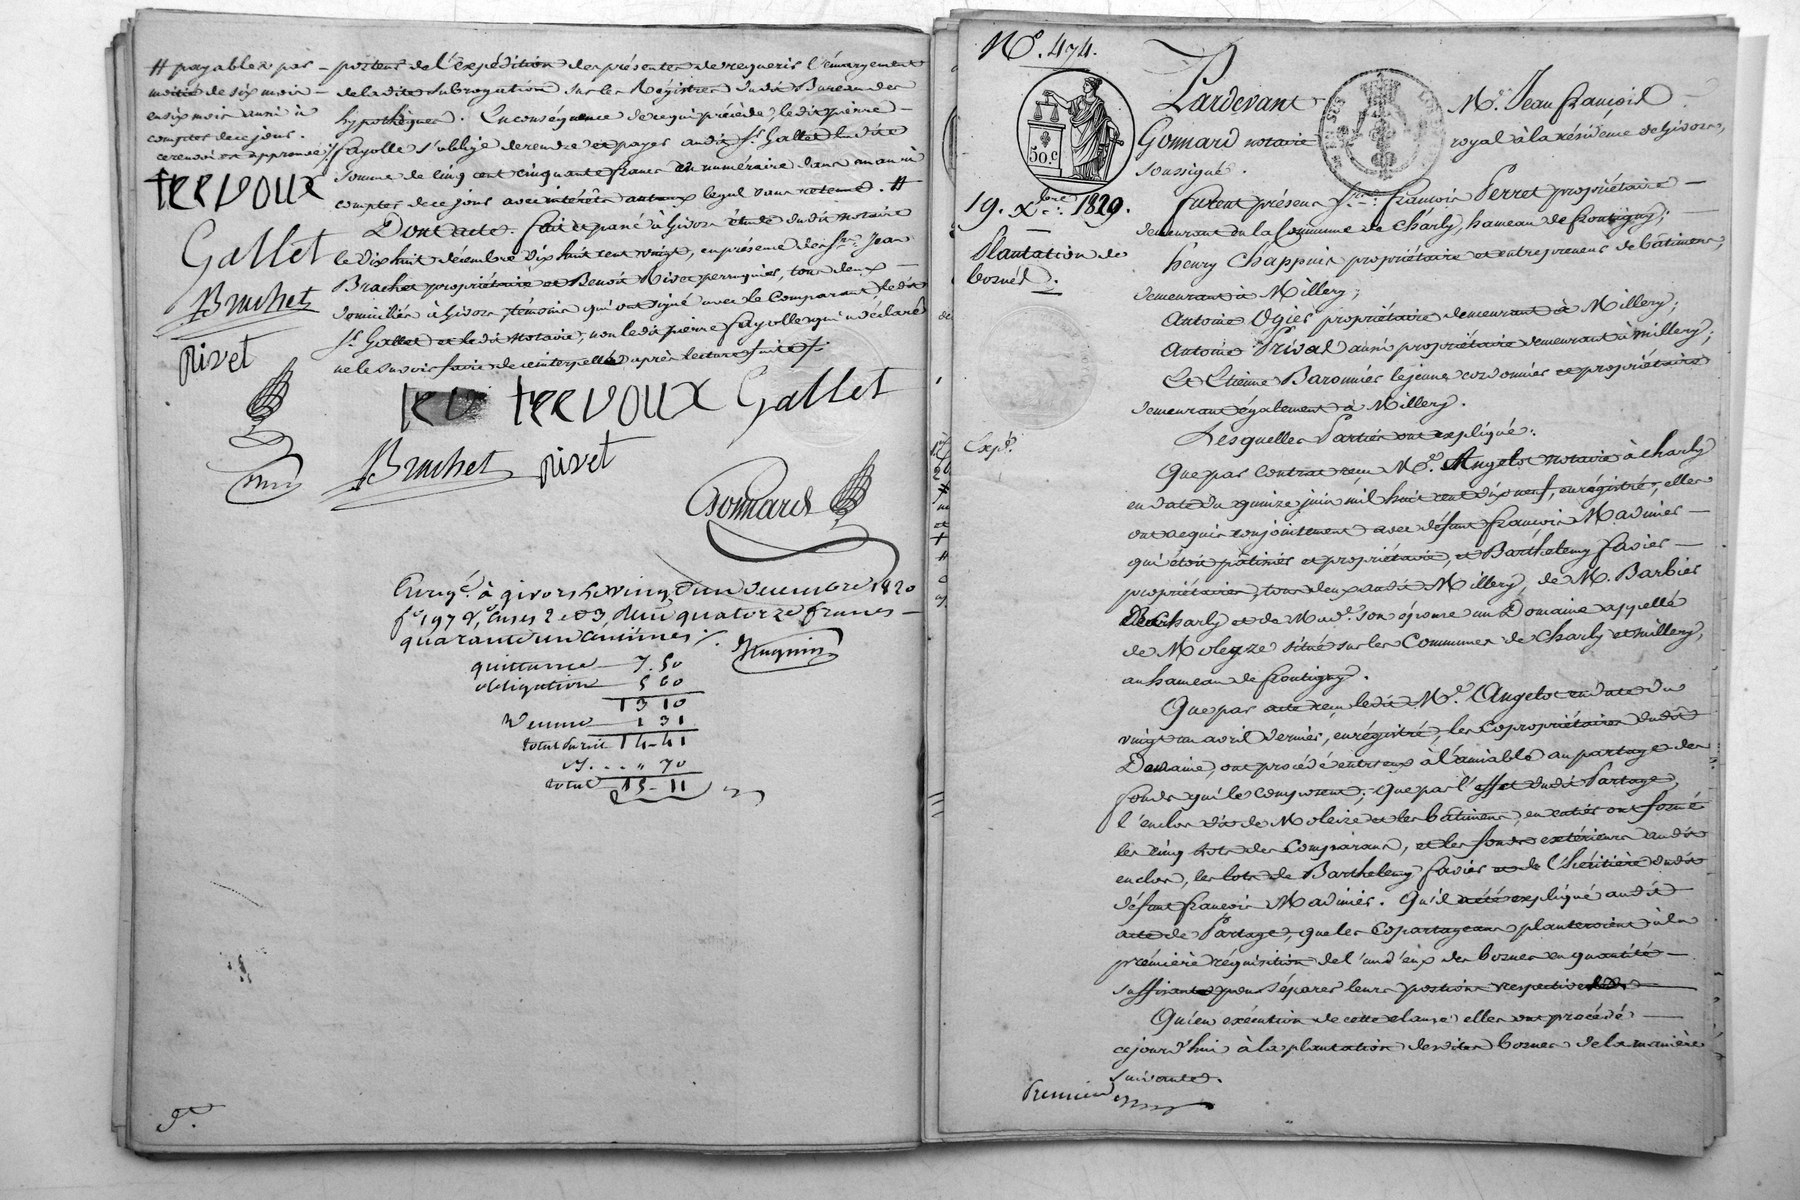 # payables par
moitié de six mois
en six mois ainsi à
compter de ce jour.
ce renvoi est approuvé
TERVOUX
Gallet
Brachet
Rivet
porteur de l'expédition des présentes de requérir l'émargement
de la dite subrogation sur les Registres du dit Bureau des
hypothèques. En conséquence de ce qui précède, le dit pierre
fayolle s'oblige de rendre et payer au dit Sr. Gallet la dite
somme de cinq cent cinquante francs en numéraire dans
compter de ce jour avec intérêts au taux légal sans retenue. #
Dont acte. fait et passé à Givors étude du dit notaire
le dix huit décembre dix huit cent vingt, en présence de Srs. Jean
Brachet propriétaire et Benoit Rivet perruquier, tous deux
domiciliés à Givors, témoins qui ont signé avec le Comparant le dit
Sr. Gallet et le dit Notaire, non le dit pierre fayolle qui a déclaré
ne le savoir faire de ce interpellé après lecture faite.
TERVOUX Gallet
Brachet Rivet
Gonnard
Enregé. à givors le vingt un decembre 1820
fo. 197 Vo. Cases 2 et 3, Reçu quatorze francs
quarante un centimes.
Hugnin
quittance 7.50
obligation 5 60
13 10
Dixieme 1 31
total du reçu 14-41
70
total 15-11
No. 474.
Pardevant Me. Jean françois
Gonnard notaire royal à la résidence de Givors,
soussigné.
50. c
19. Xbre. 1820.
Plantation de
bornes.
Expé.
furent présens Srs. françois Perret propriétaire
demeurant en la Commune de Charly, hameau de frontigny;
henry Chappuis propriétaire et entrepreneur de bâtimens,
demeurant à Millery;
Antoine Ogier propriétaire demeurant à Millery;
Antoine Prival aussi propriétaire demeurant à Millery;
Et Etienne Baronnier le jeune cordonnier et propriétaire
demeurant également à Millery.
Lesquelles Parties ont expliqué:
Que par contrat reçu Me. Angelot notaire à Charly
en date du quinze juin mil huit cent dix neuf, enrégistré, elles
ont acquis conjointement avec défunt françois Madinier
qui étoit platrier et propriétaire, et Barthelemy favier
propriétaire, tous deux audit Millery, de M. Barbier
De Charly et de Made. son épouse un Domaine appellé
de Moleyze situé sur les Communes de Charly et millery,
au hameau de frontigny.
Que par acte reçu le dit Me. Angelot en date du
vingt un avril dernier, enrégistré, les Copropriétaires du dit
Domaine, ont procédé entr'eux à l'amiable au partage des
fonds qui le composent; Que par l'effet du dit Partage,
l'enclos dit de Moleize et les bâtimens y entrés ont formé
les cinq lots des Comparans, et les fonds extérieurs au dit
enclos, les lots de Barthelemy favier et de l'héritière du dit
défunt françois Madinier. Qu'il a été expliqué au dit
acte de Partage, que les Copartageans planteroient à la
première réquisition de l'un d'eux des bornes en quantité
suffisante pour séparer leurs portions respectives
Qu'en exécution de cette clause elles ont procédé
ce jourd'hui à la plantation desdites bornes de la manière
suivante.
Premier